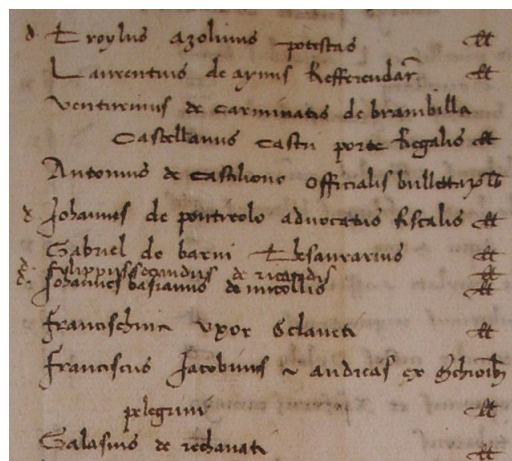 d Troylus azolinus potestas
Laurentius de aynus Refferendar
Venturinus de Carminatis de brambilla
Castellanus Castri porte Regalis
Antonius de Castiliono officialis bulletar
Johannes de pontreolo advocatus fiscalis
Gabriel de barni Thesaurarius
filippus secundus de ricardis
Johannes basianus de nicollis
Francischina uxor Sclaveti
Franciscus Jacobinus et andreas ex
pelegrini
Galasius de rechanati